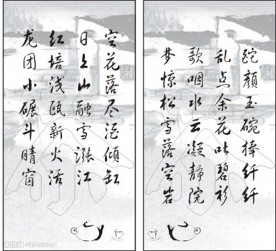 酡颜玉碗捧纤纤
乱点余花吐碧衫
歌咽水云凝静院
梦惊松雪落空岩
空花落尽酒倾缸
日上山融雪涨江
红培浅瓯新火活
龙团小碾斗晴窗